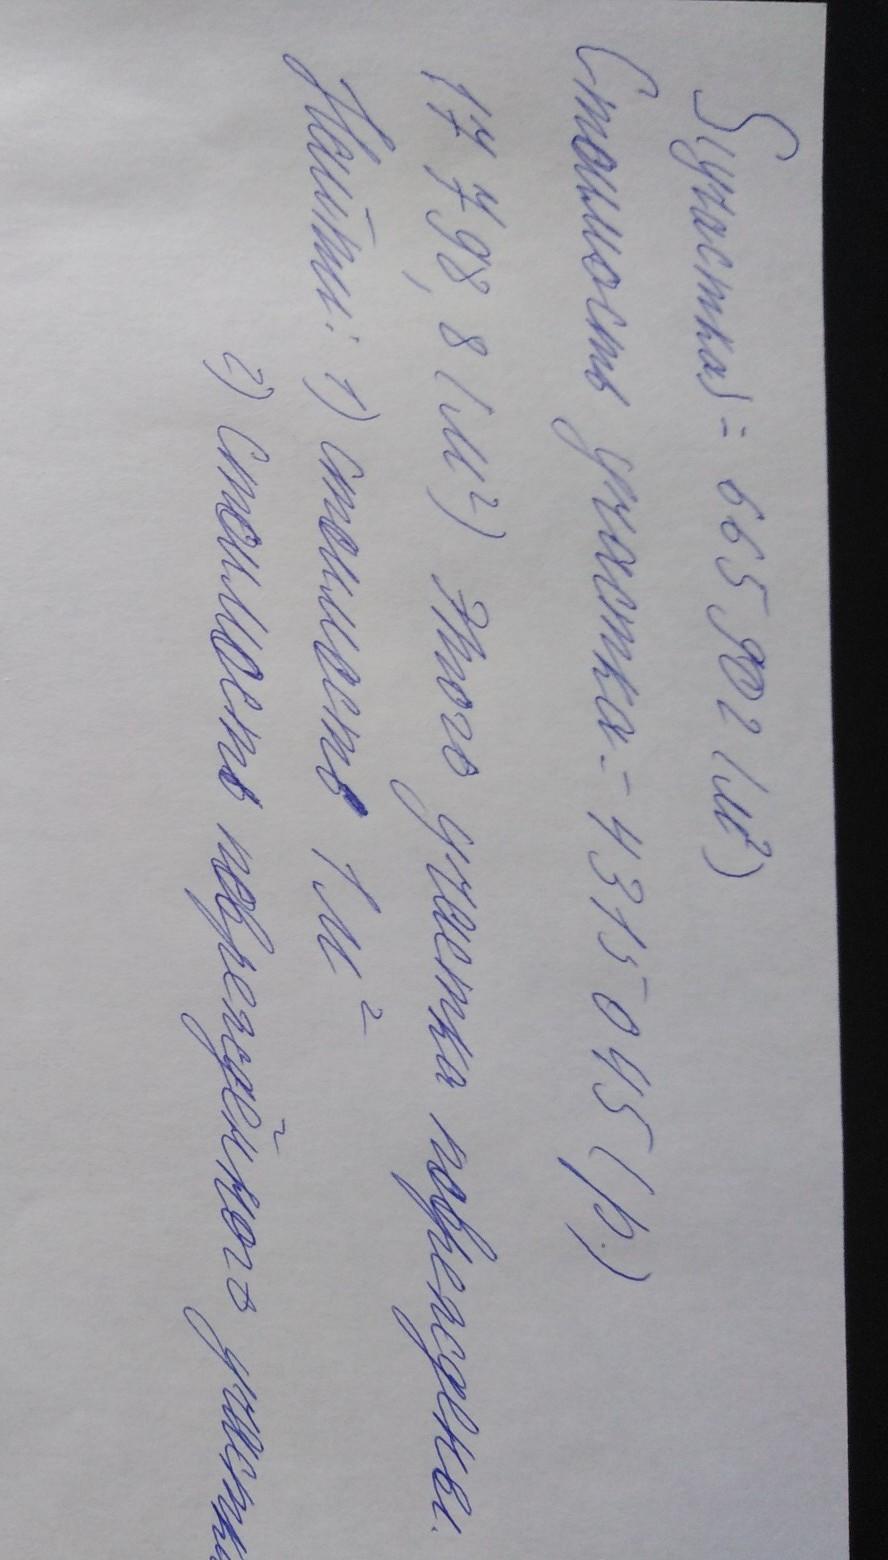 Sучастка = 665 902 (м²)
Стоимость участка = 4315 045 (р.)
17 798, 8 (м²) Этого участка повреждены.
Найти: 1) стоимость 1 м²
2) Стоимость повреждённого участка